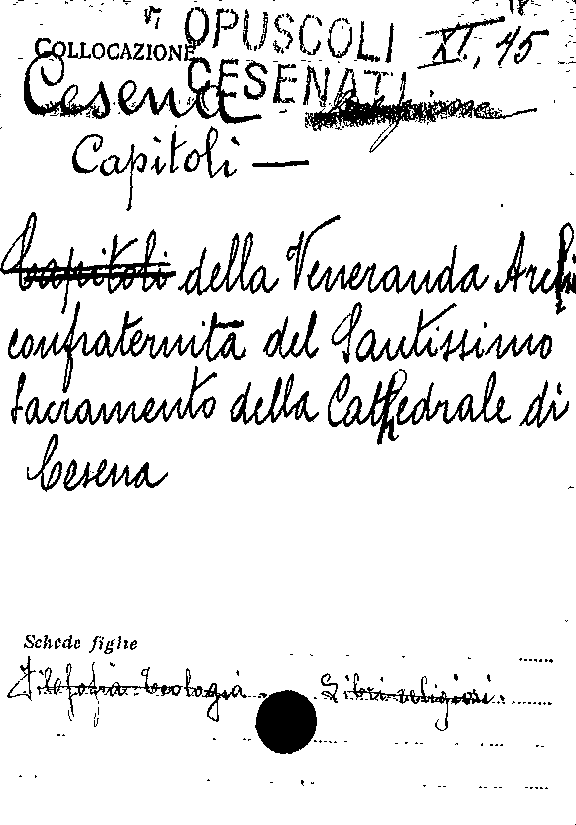 OPUSCOLI XI, 45
COLLOCAZIONE
CESENATI
Cesena
Capitoli —
Capitoli della Veneranda Archi
confraternità del Santissimo
Sacramento della Cathedrale di
Cesena
Schede figlie
Filosofia-teologia. Libri religiosi.